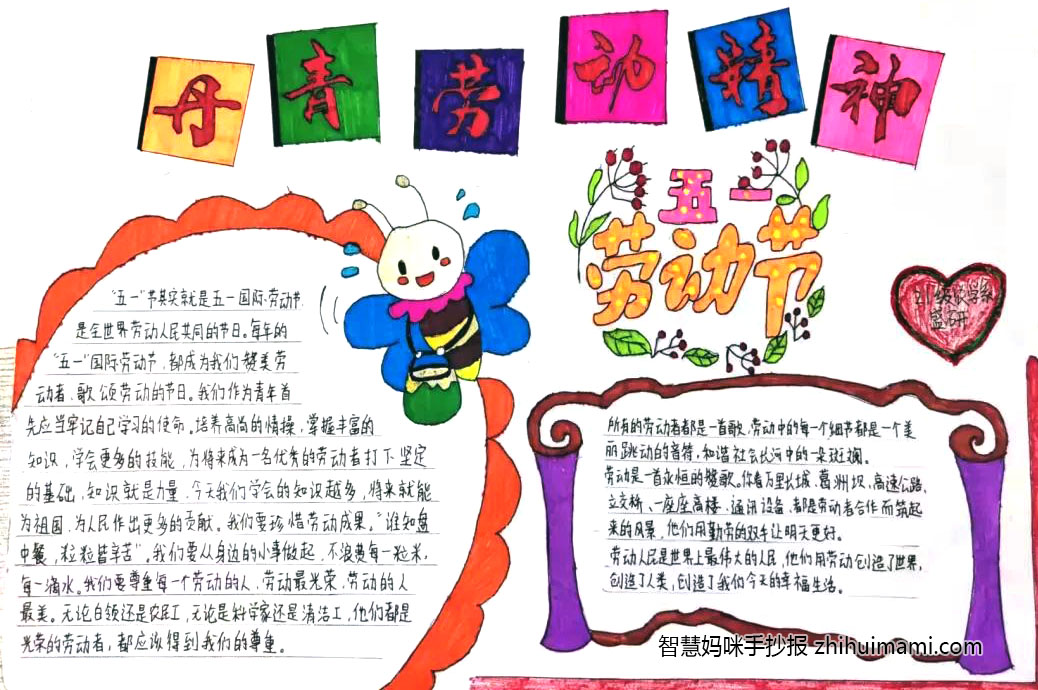 丹青劳动精神
五一
劳动节
21级农学系
盛开
"五一"节其实就是五一国际劳动节.
是全世界劳动人民共同的节日。每年的
"五一"国际劳动节,都成为我们赞美劳
动者、歌颂劳动的节日。我们作为青年首
先应当牢记自己学习的使命。培养高尚的情操,掌握丰富的
知识,学会更多的技能,为将来成为一名优秀的劳动者打下坚定
的基础,知识就是力量,今天我们学会的知识越多,将来就能
为祖国、为人民作出更多的贡献。我们要珍惜劳动成果。"谁知盘
中餐,粒粒皆辛苦"。我们要从身边的小事做起,不浪费每一粒米,
每一滴水。我们要尊重每一个劳动的人,劳动最光荣、劳动的人
最美。无论白领还是农民工,无论是科学家还是清洁工,他们都是
光荣的劳动者,都应该得到我们的尊重。
所有的劳动者都是一首歌,劳动中的每一个细节都是一个美
丽跳动的音符,和谐社会长河中的一朵斑斓。
劳动是一首永恒的赞歌。你看万里长城、葛洲坝、高速公路、
立交桥、一座座高楼、通讯设备,都是劳动者合作而筑起
来的风景,他们用勤劳的双手让明天更好。
劳动人民是世界上最伟大的人民,他们用劳动创造了世界,
创造了人类,创造了我们今天的幸福生活。
智慧妈咪手抄报 zhihuimami.com